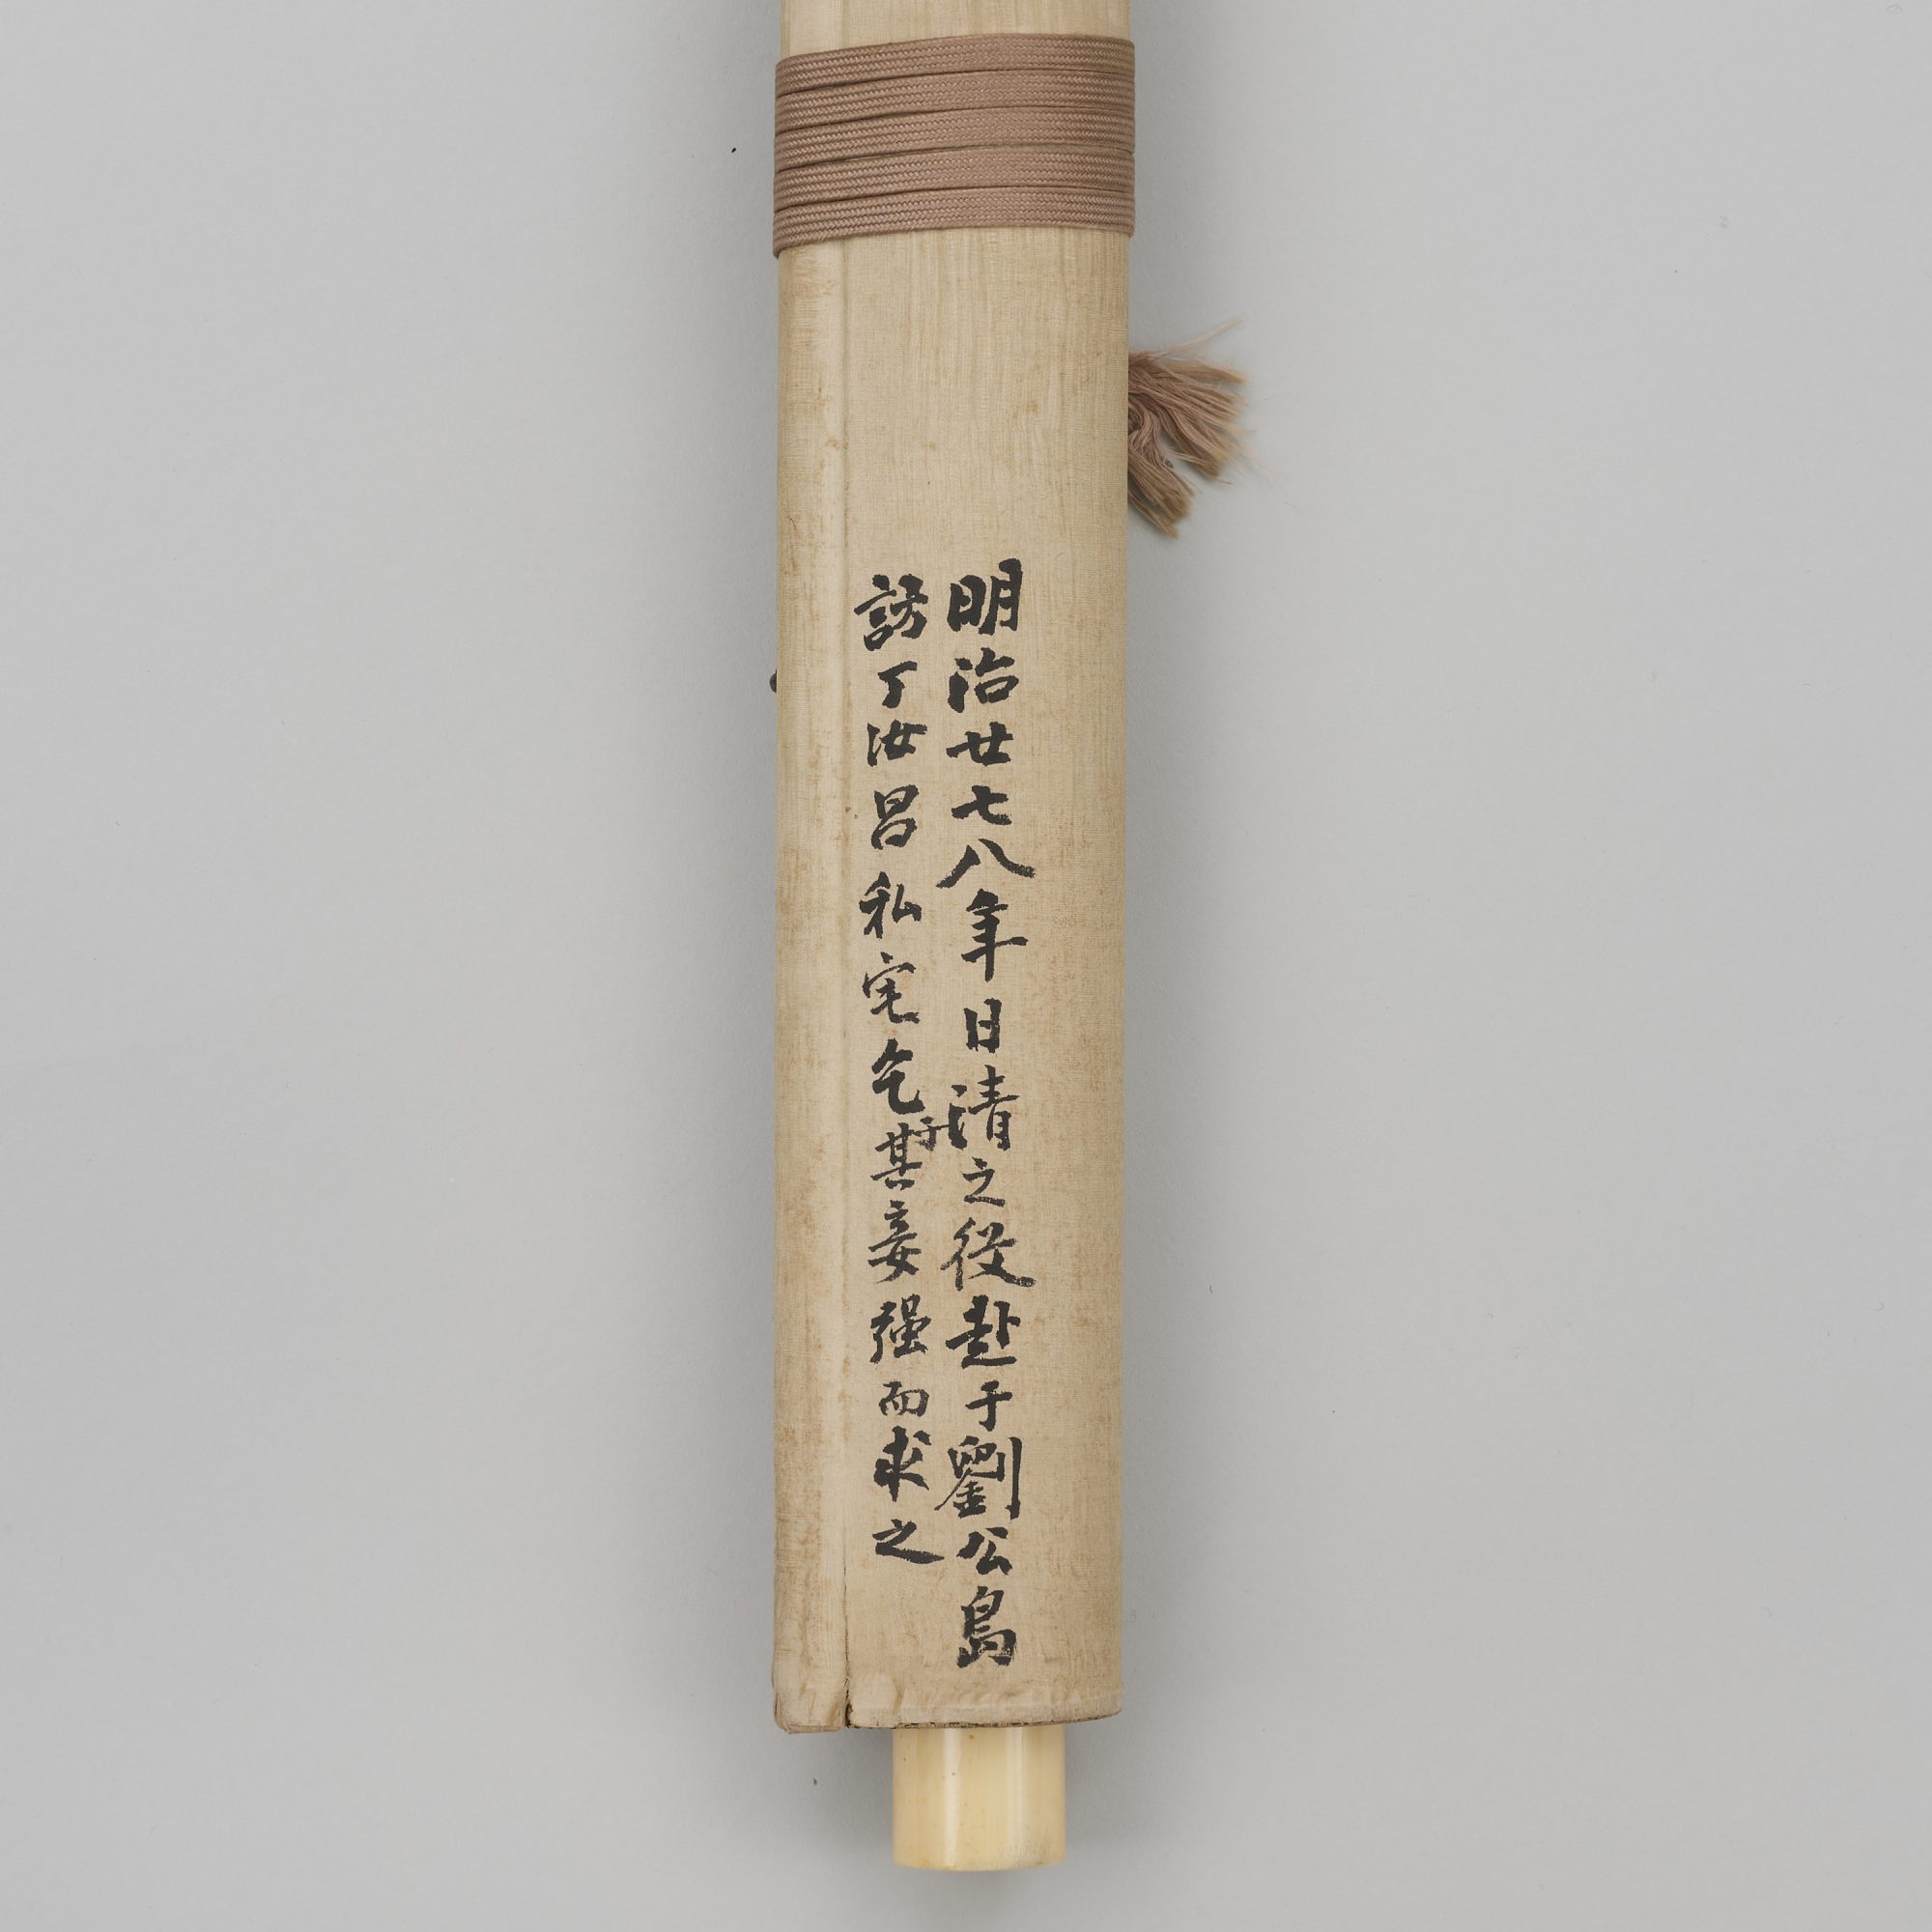 明治廿七八年日清之役赴于劉公島
訪丁汝昌私宅乞于其妾强而求之